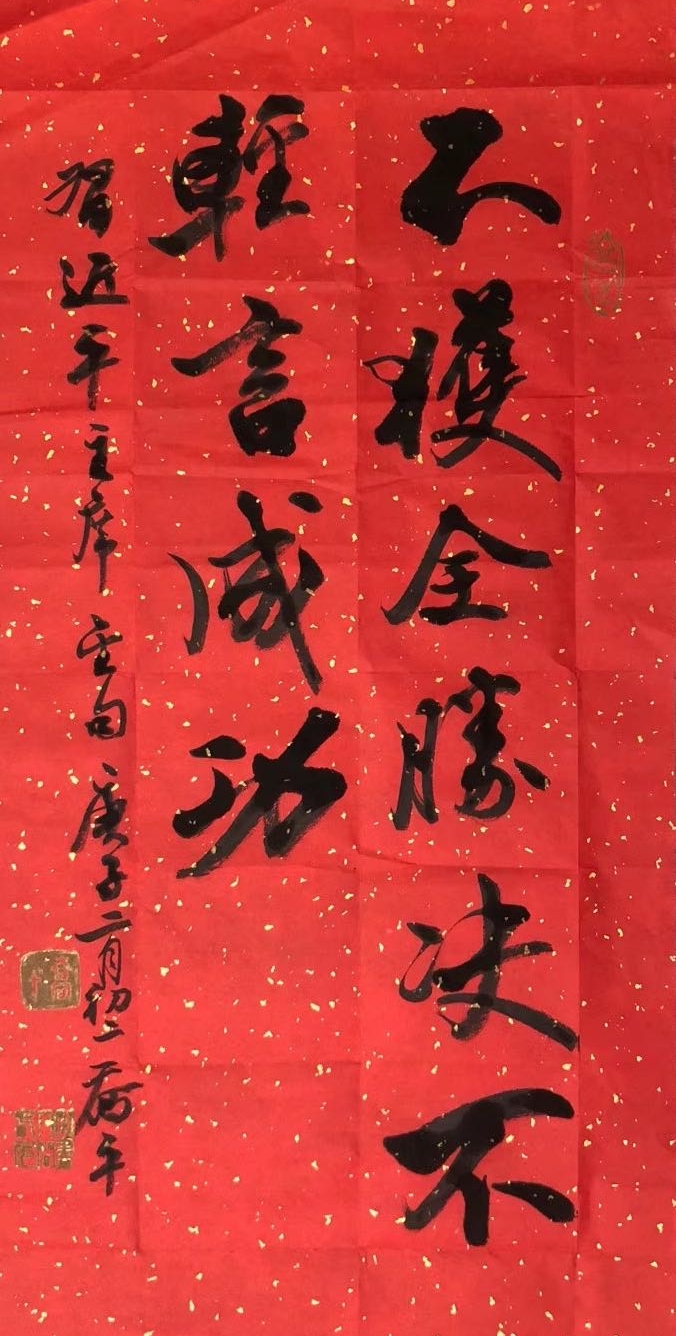 不獲全勝决不
輕言成功
習近平主席金句 庚子二月初二 平